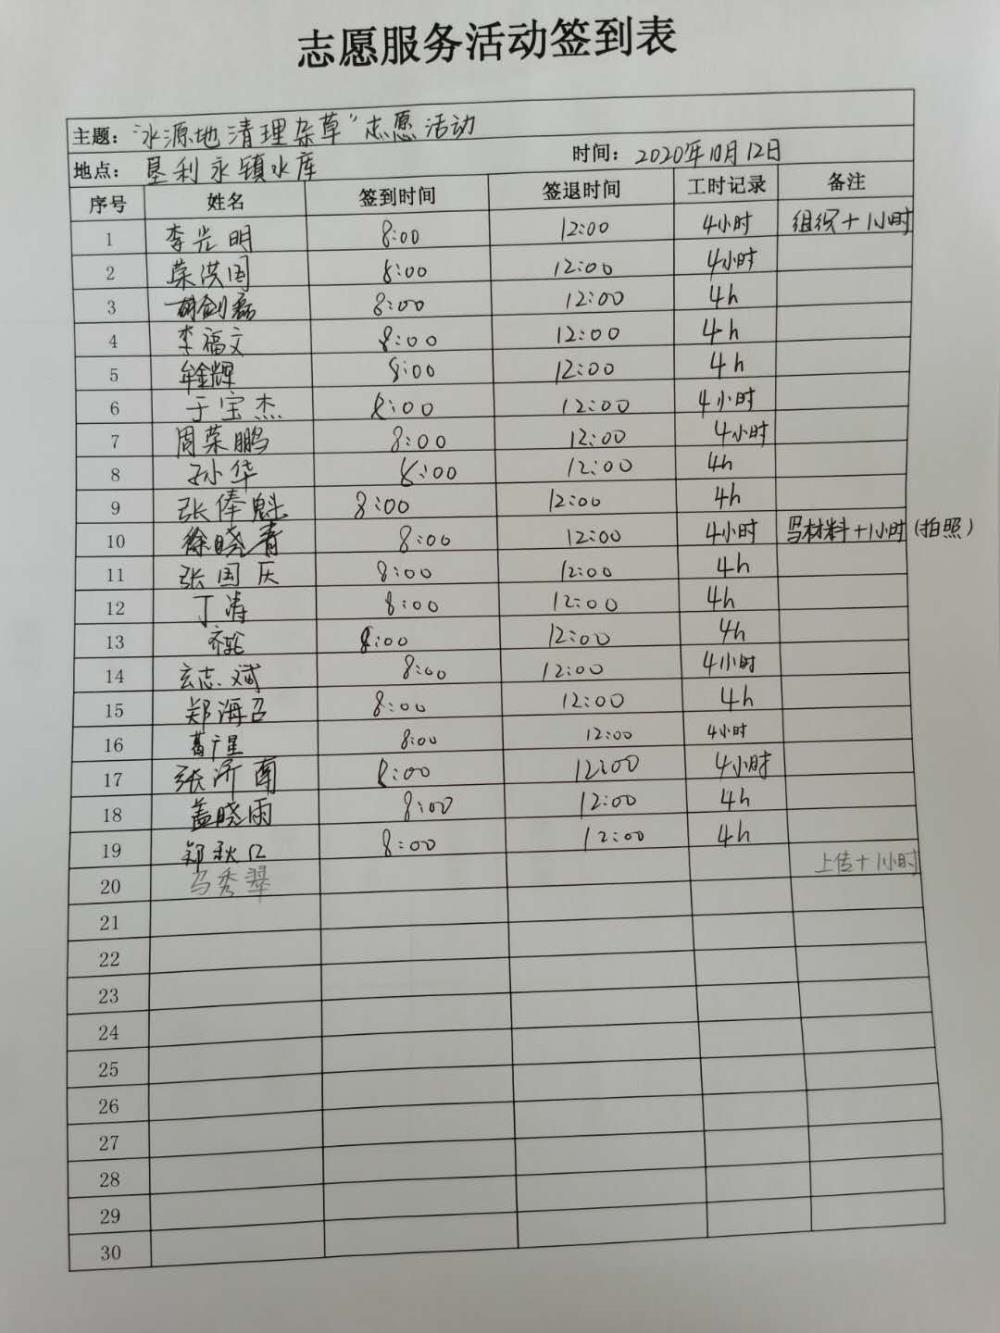 志愿服务活动签到表
主题：“水源地清理杂草”志愿活动
地点：垦利永镇水库 时间：2020年10月12日
序号 姓名 签到时间 签退时间 工时记录 备注
1 李光明 8:00 12:00 4小时 组织+1小时
2 荣洪国 8:00 12:00 4小时
3 胡剑磊 8:00 12:00 4h
4 李福文 8:00 12:00 4h
5 牟金辉 8:00 12:00 4h
6 于宝杰 8:00 12:00 4小时
7 周荣鹏 8:00 12:00 4小时
8 孙华 8:00 12:00 4h
9 张俸魁 8:00 12:00 4h
10 徐晓青 8:00 12:00 4小时 写材料+1小时(拍照)
11 张国庆 8:00 12:00 4h
12 丁涛 8:00 12:00 4h
13 8:00 12:00 4h
14 玄志斌 8:00 12:00 4小时
15 郑海召 8:00 12:00 4h
16 葛广星 8:00 12:00 4小时
17 张济南 8:00 12:00 4小时
18 盖晓雨 8:00 12:00 4h
19 8:00 12:00 4h
20 马秀翠 上传+1小时
21
22
23
24
25
26
27
28
29
30